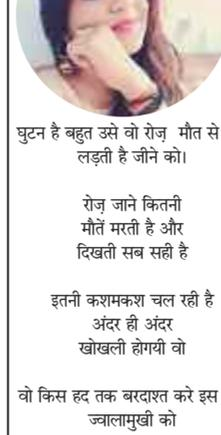 घुटन है बहुत उसे वो रोज़ मौत से
लड़ती है जीने को।
रोज़ जाने कितनी
मौतें मरती है और
दिखती सब सही है
इतनी कशमकश चल रही है
अंदर ही अंदर
खोखली होगयी वो
वो किस हद तक बरदाश्त करे इस
ज्वालामुखी को